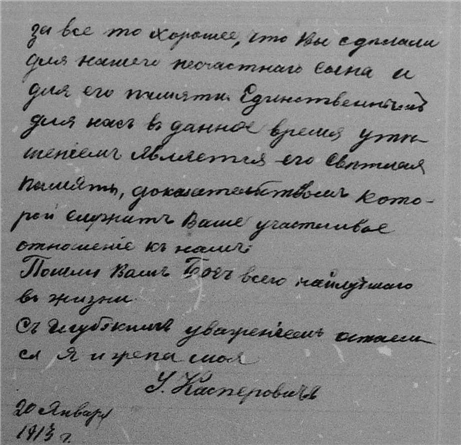 за все то хорошее, что Вы сделали
для нашего несчастнаго сына и
для его памяти. Единственным
для насъ въ данное время утѣ-
шеніемъ является его свѣтлая
память, доказательствомъ кото-
рой служитъ Ваше участливое
отношеніе къ намъ.
Пошли Вамъ Богъ всего наилучшаго
въ жизни
Съ глубокимъ уваженіемъ остаем-
ся я и жена моя
Касперовичъ
20 Января
1913 г.